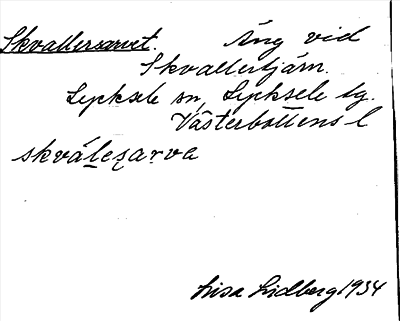 Skvallersarvet. Äng vid
Skvallertjärn.
Lycksele sn, Lycksele lg.
Västerbottens l
skválesarva
Lisa Lidberg 1934